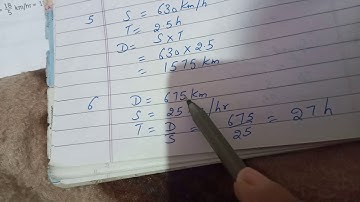 5 S = 630 km/h
T = 2.5h
D = S x T
= 630 x 2.5
= 1575 km
6 D = 675 km
S = 25 /hr
T = D/S = 675/25 = 27 h